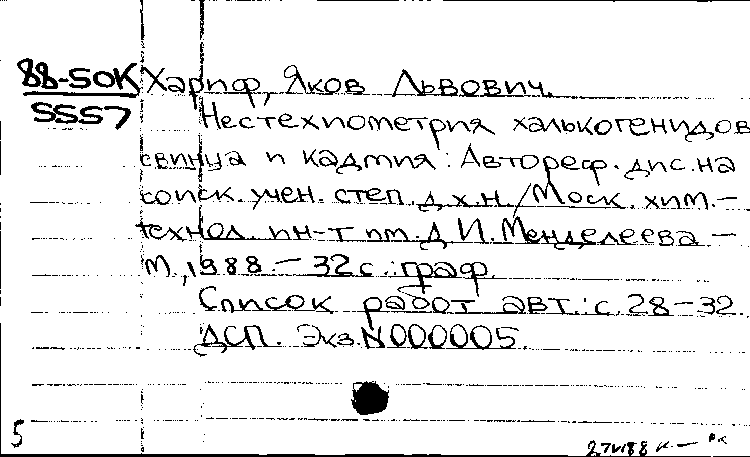 88-50К Хариф, Яков Львович.
5557 Нестехиометрия халькогенидов
свинца и кадмия: Автореф. дис. на
соиск. учен. степ. д.х.н./Моск. хим.-
технол. ин-т им. Д.И. Менделеева —
М., 1988. — 32 с.: граф.
Список работ авт.: с. 28-32.
ДСП. Экз. N 000005.
5